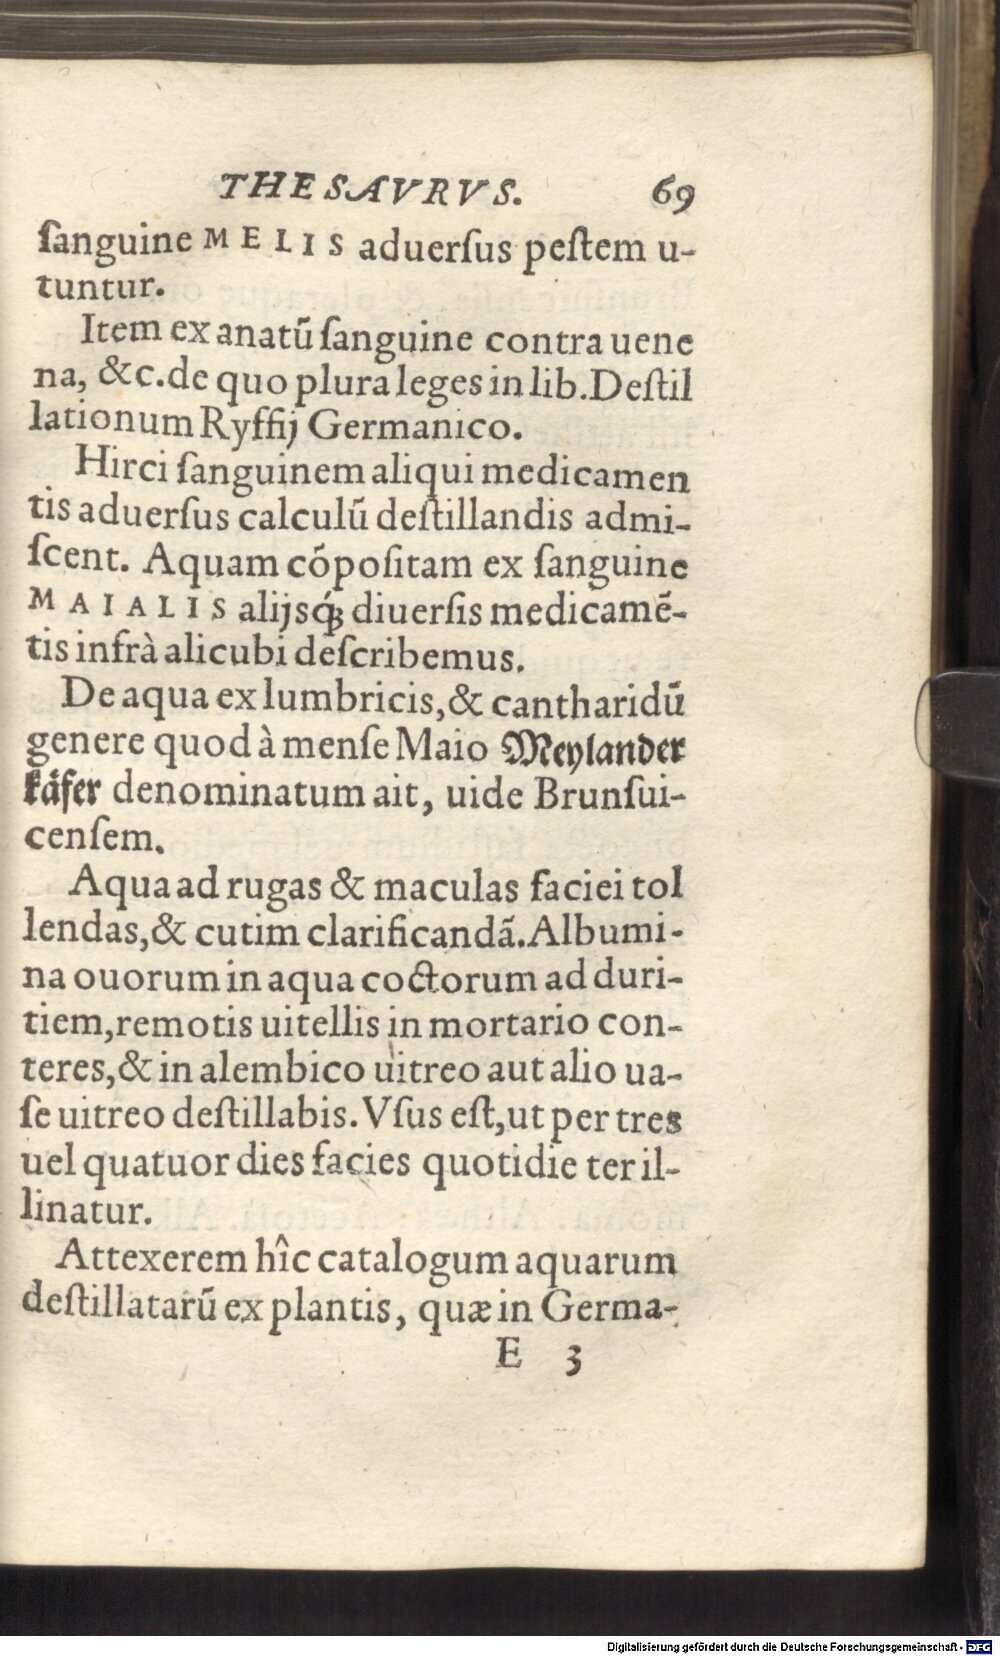 THESAVRVS. 69
ſanguine MELIS aduerſus peſtem u-
tuntur.
Item ex anatū ſanguine contra uene
na, &c. de quo plura leges in lib. Deſtil
lationum Ryffij Germanico.
Hirci ſanguinem aliqui medicamen
tis aduerſus calculū deſtillandis admi-
ſcent. Aquam cōpoſitam ex ſanguine
MAIALIS alijsq́; diuerſis medicamē-
tis infrà alicubi deſcribemus.
De aqua ex lumbricis, & cantharidū
genere quod à menſe Maio Meylander
käfer denominatum ait, uide Brunſui-
cenſem.
Aqua ad rugas & maculas faciei tol
lendas, & cutim clarificandā. Albumi-
na ouorum in aqua coctorum ad duri-
tiem, remotis uitellis in mortario con-
teres, & in alembico uitreo aut alio ua-
ſe uitreo deſtillabis. Vſus eſt, ut per tres
uel quatuor dies facies quotidie ter il-
linatur.
Attexerem hîc catalogum aquarum
deſtillatarū ex plantis, quæ in Germa-
E 3
Digitalisierung gefördert durch die Deutsche Forschungsgemeinschaft - DFG